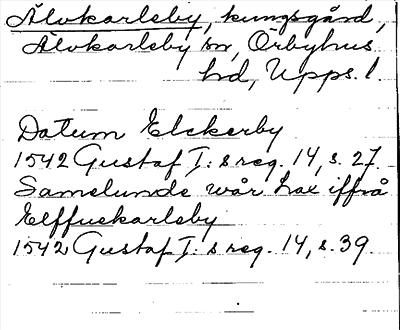 Älvkarleby, kungsgård,
Älvkarleby sn, Örbyhus
hd, Upps. l.
Datum Elckerby
1542 Gustaf I: s reg. 14, s. 27.
Samelunde wår lax iffrå
Elffuekarleby
1542 Gustaf I: s reg. 14, s. 39.